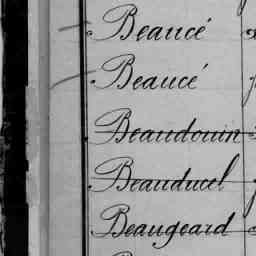 Beaucé
Beaucé
Beaudouin
Beauducel
Beaugeard